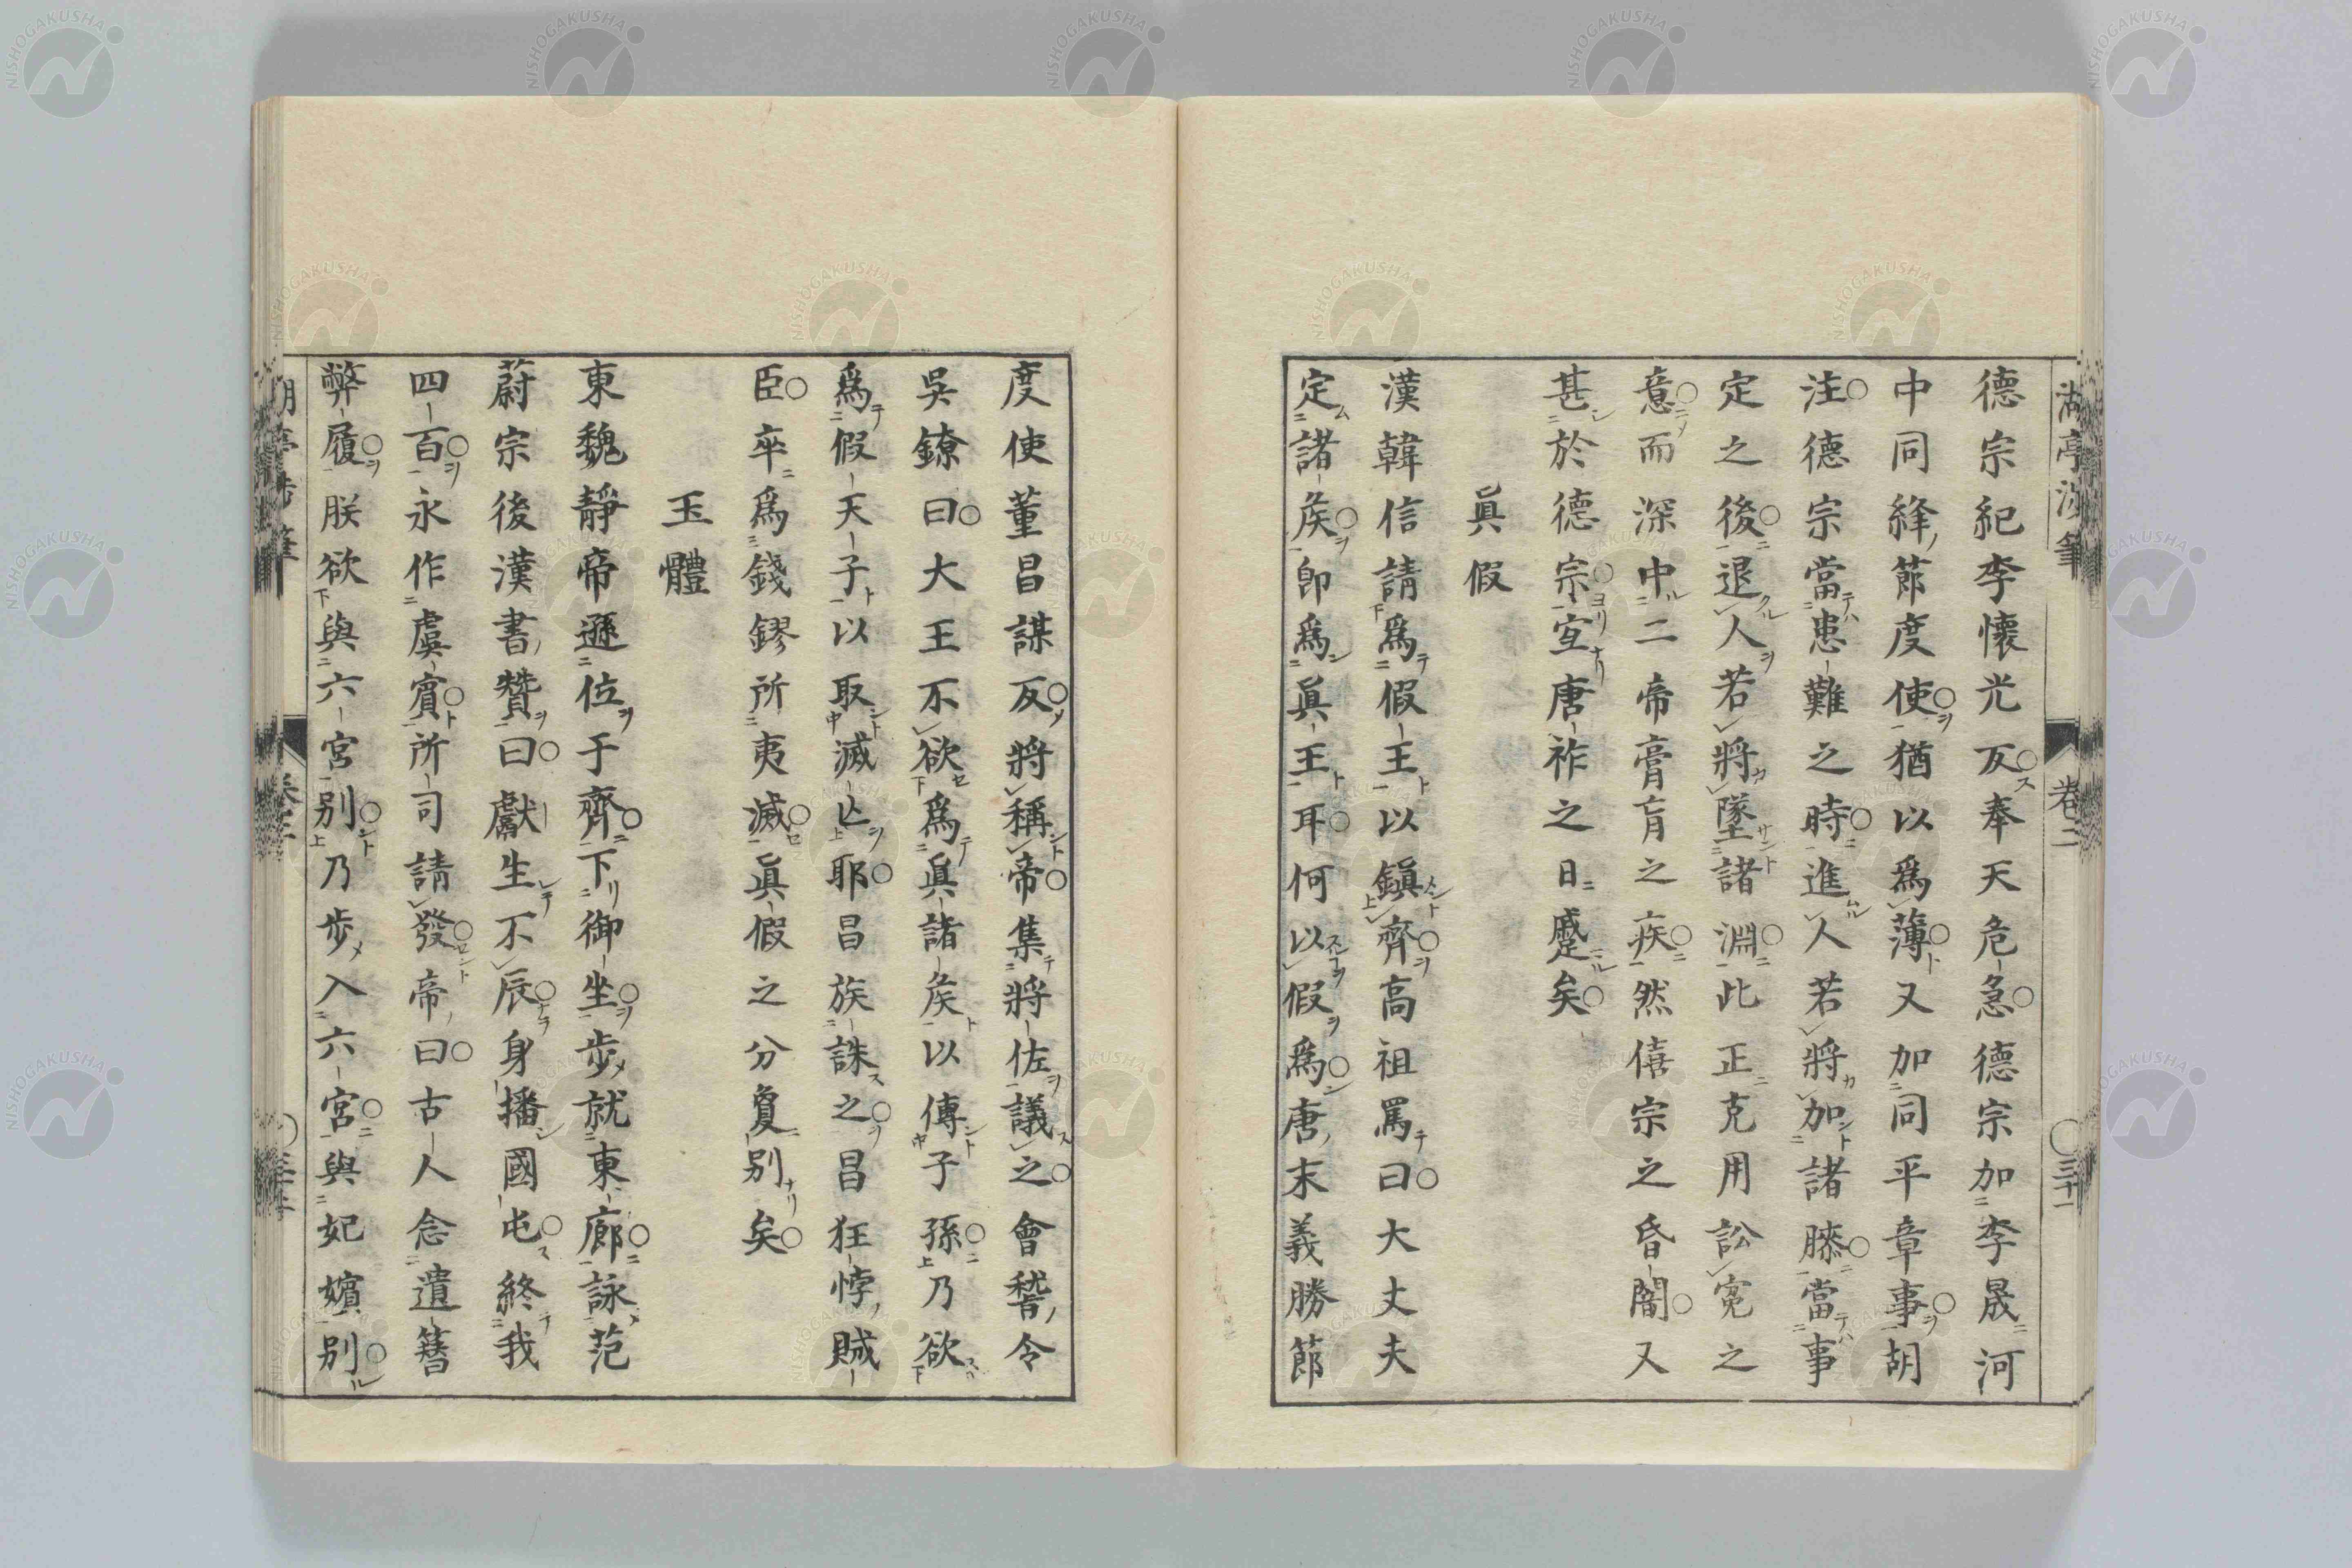 德宗紀李懷光反奉天危急德宗加李晟河
中同絳節度使猶以爲薄又加同平章事胡
注德宗當患難之時進人若將加諸膝當事
定之後退人若將墜諸淵此正克用訟寃之
意而深中二帝膏肓之疾然僖宗之昏闇又
甚於德宗宜唐祚之日蹙矣
眞假
漢韓信請爲假王以鎭齊高祖罵曰大丈夫
定諸矦卽爲眞王耳何以假爲唐末義勝節
度使董昌謀反將稱帝集將佐議之會稽令
吳鐐曰大王不欲爲眞諸矦以傳子孫乃欲
爲假天子以取滅亾耶昌族誅之昌狂悖賊
臣卒爲錢鏐所夷滅眞假之分夐別矣
玉體
東魏靜帝遜位于齊下御坐步就東廊詠范
蔚宗後漢書贊曰獻生不辰身播國屯終我
四百永作虞賓所司請發帝曰古人念遺簪
弊履朕欲與六宮別乃步入六宮與妃嬪別
湖亭涉筆
卷二
三十一
NISHOGAKUSHA